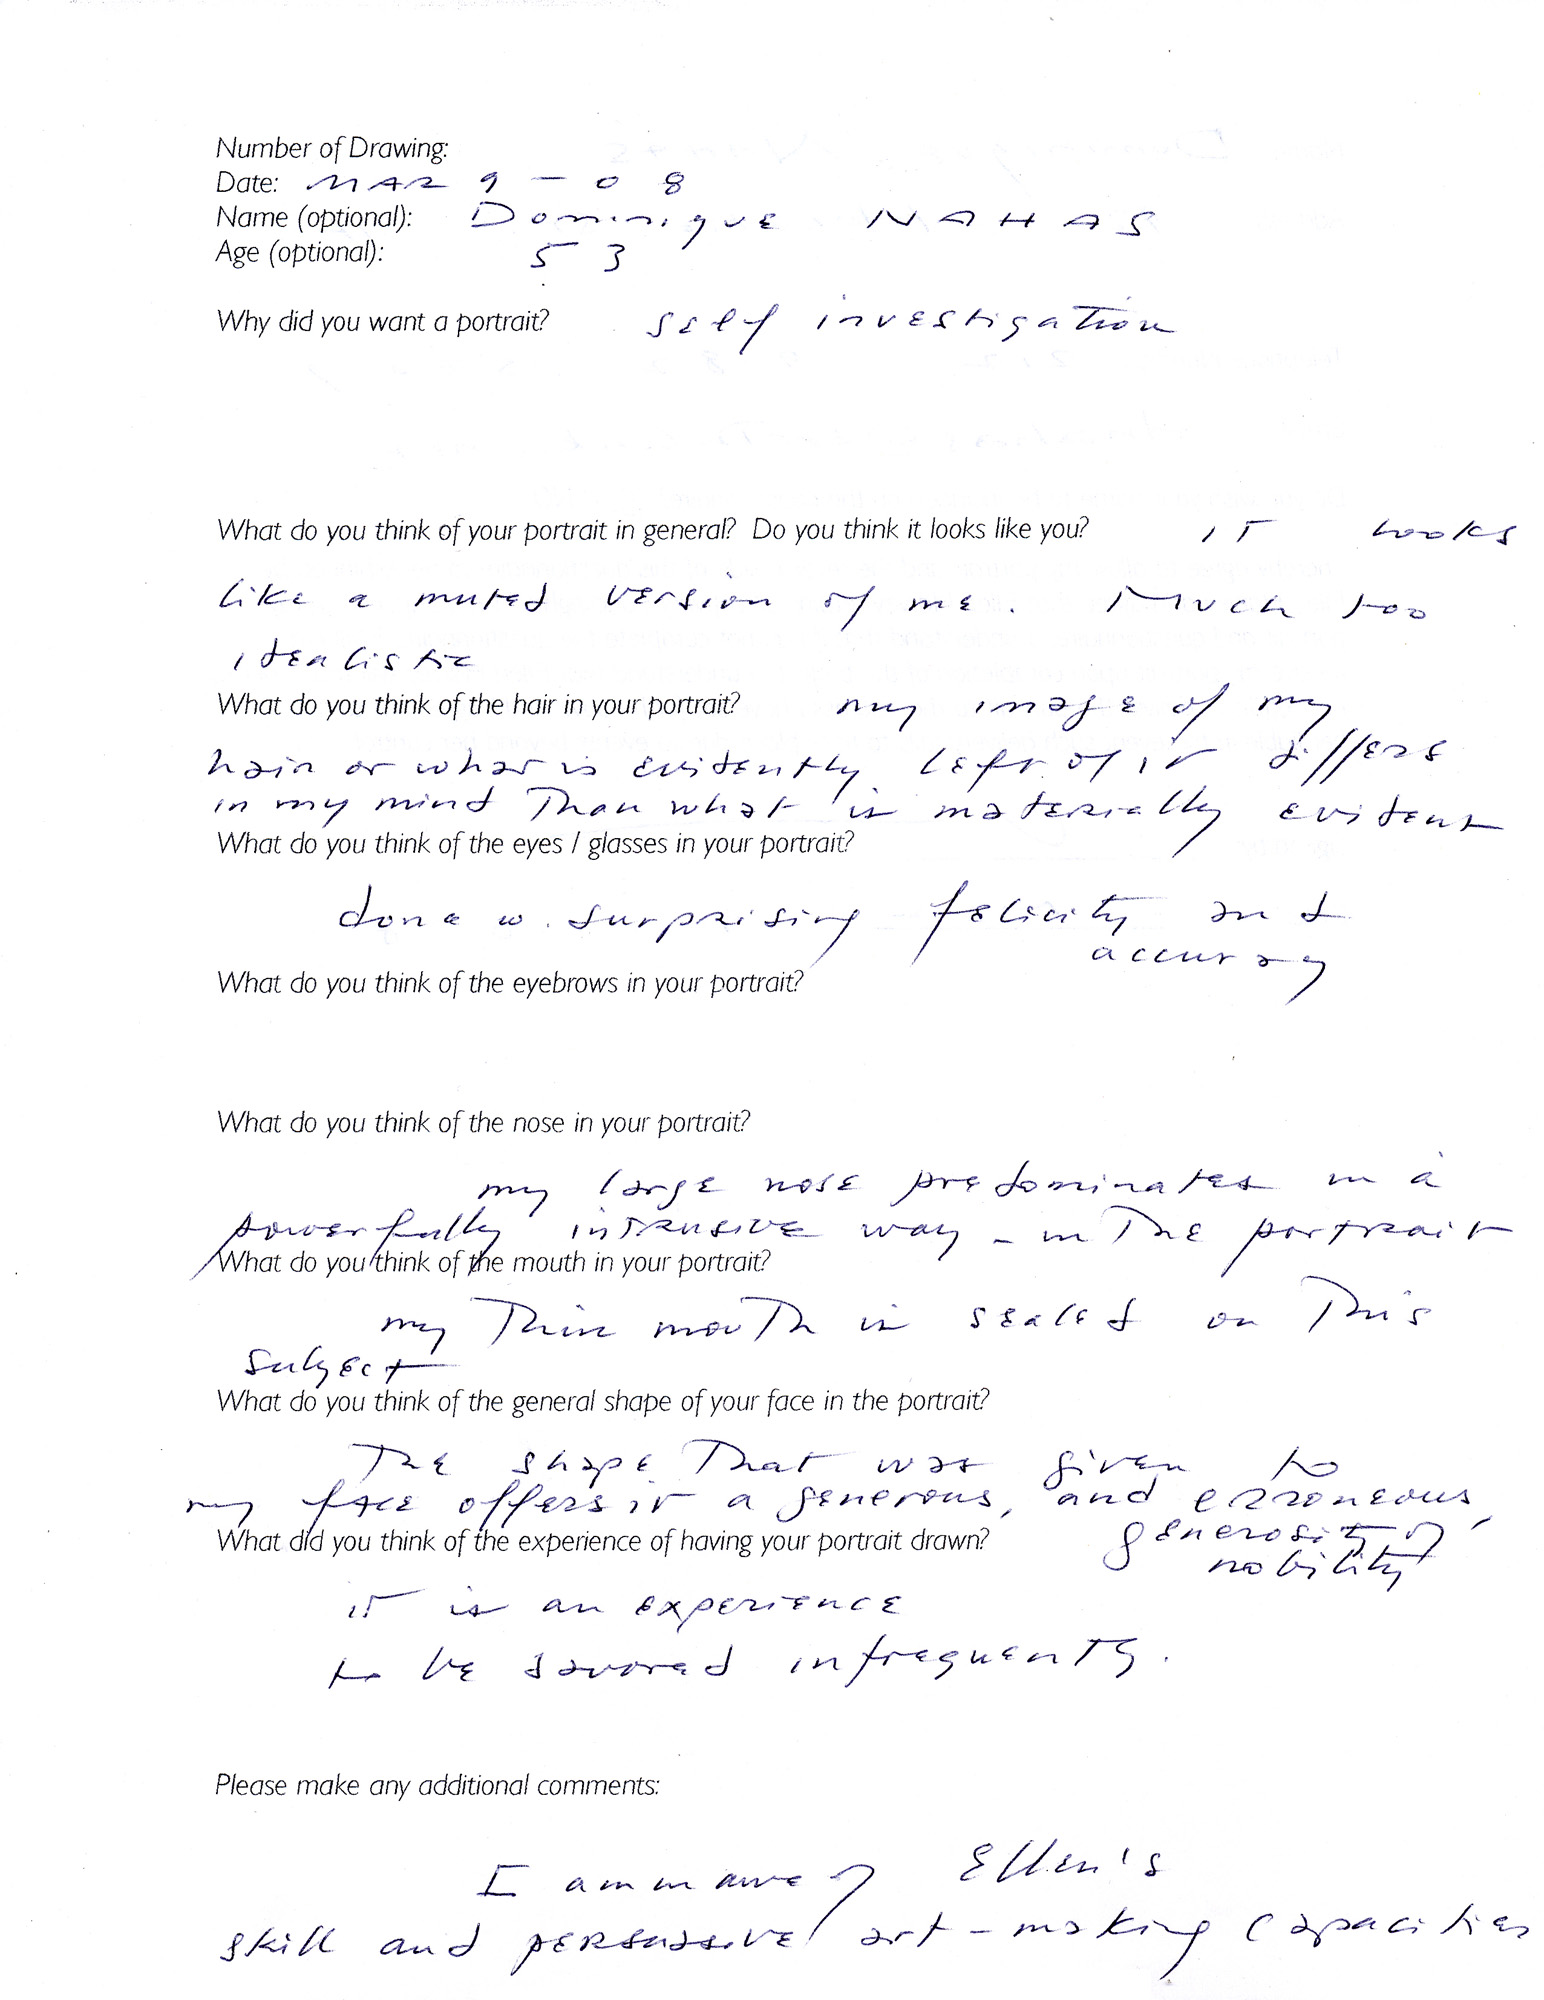 Number of Drawing:
Date: MAR 9 - 08
Name (optional): Dominique NAHAS
Age (optional): 53
Why did you want a portrait? self investigation
What do you think of your portrait in general? Do you think it looks like you? IT looks
like a muted version of me. Much too
idealistic
What do you think of the hair in your portrait? my image of my
hair or what is evidently left of it differs
in my mind Than what is materially evident
What do you think of the eyes / glasses in your portrait?
done w. surprising felicity and
accuracy
What do you think of the eyebrows in your portrait?
What do you think of the nose in your portrait?
my large nose predominates in a
powerfully intrusive way - in The portrait
What do you think of the mouth in your portrait?
my Thin mouth is sealed on This
subject
What do you think of the general shape of your face in the portrait?
The shape That was given to
my face offers it a generous, and erroneous,
generosity of
nobility
What did you think of the experience of having your portrait drawn?
it is an experience
to be savored infrequently.
Please make any additional comments:
I am in awe of Ellen's
skill and persuasive art-making capacities